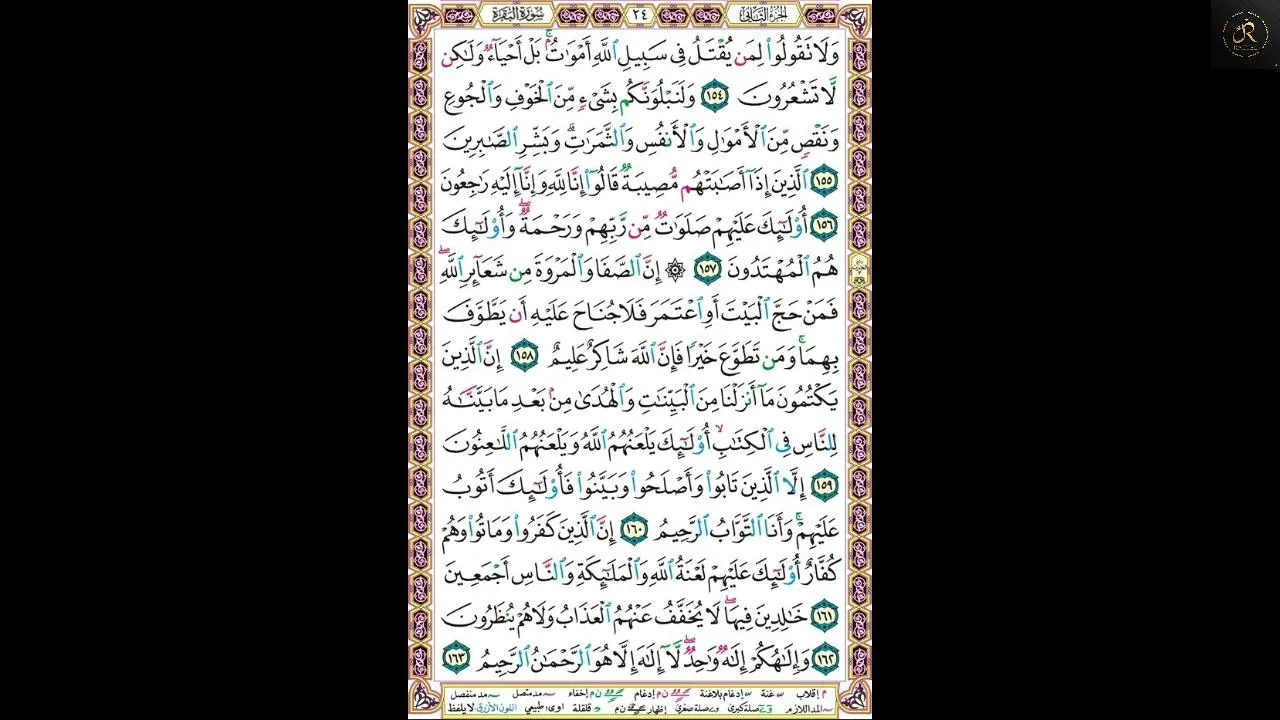 الجزء الثاني ٢٤ سورة البقرة
وَلَا تَقُولُوا۟ لِمَن يُقْتَلُ فِى سَبِيلِ ٱللَّهِ أَمْوَٰتٌۢ ۚ بَلْ أَحْيَآءٌ وَلَٰكِن
لَّا تَشْعُرُونَ ١٥٤ وَلَنَبْلُوَنَّكُم بِشَىْءٍ مِّنَ ٱلْخَوْفِ وَٱلْجُوعِ
وَنَقْصٍ مِّنَ ٱلْأَمْوَٰلِ وَٱلْأَنفُسِ وَٱلثَّمَرَٰتِ ۗ وَبَشِّرِ ٱلصَّٰبِرِينَ
١٥٥ ٱلَّذِينَ إِذَآ أَصَٰبَتْهُم مُّصِيبَةٌ قَالُوٓا۟ إِنَّا لِلَّهِ وَإِنَّآ إِلَيْهِ رَٰجِعُونَ
١٥٦ أُو۟لَٰٓئِكَ عَلَيْهِمْ صَلَوَٰتٌ مِّن رَّبِّهِمْ وَرَحْمَةٌ ۖ وَأُو۟لَٰٓئِكَ
هُمُ ٱلْمُهْتَدُونَ ١٥٧ ۞ إِنَّ ٱلصَّفَا وَٱلْمَرْوَةَ مِن شَعَآئِرِ ٱللَّهِ ۖ
فَمَنْ حَجَّ ٱلْبَيْتَ أَوِ ٱعْتَمَرَ فَلَا جُنَاحَ عَلَيْهِ أَن يَطَّوَّفَ
بِهِمَا ۚ وَمَن تَطَوَّعَ خَيْرًا فَإِنَّ ٱللَّهَ شَاكِرٌ عَلِيمٌ ١٥٨ إِنَّ ٱلَّذِينَ
يَكْتُمُونَ مَآ أَنزَلْنَا مِنَ ٱلْبَيِّنَٰتِ وَٱلْهُدَىٰ مِنۢ بَعْدِ مَا بَيَّنَّٰهُ
لِلنَّاسِ فِى ٱلْكِتَٰبِ ۙ أُو۟لَٰٓئِكَ يَلْعَنُهُمُ ٱللَّهُ وَيَلْعَنُهُمُ ٱللَّٰعِنُونَ
١٥٩ إِلَّا ٱلَّذِينَ تَابُوا۟ وَأَصْلَحُوا۟ وَبَيَّنُوا۟ فَأُو۟لَٰٓئِكَ أَتُوبُ
عَلَيْهِمْ ۚ وَأَنَا ٱلتَّوَّابُ ٱلرَّحِيمُ ١٦٠ إِنَّ ٱلَّذِينَ كَفَرُوا۟ وَمَاتُوا۟ وَهُمْ
كُفَّارٌ أُو۟لَٰٓئِكَ عَلَيْهِمْ لَعْنَةُ ٱللَّهِ وَٱلْمَلَٰٓئِكَةِ وَٱلنَّاسِ أَجْمَعِينَ
١٦١ خَٰلِدِينَ فِيهَا ۖ لَا يُخَفَّفُ عَنْهُمُ ٱلْعَذَابُ وَلَا هُمْ يُنظَرُونَ
١٦٢ وَإِلَٰهُكُمْ إِلَٰهٌ وَٰحِدٌ ۖ لَّآ إِلَٰهَ إِلَّا هُوَ ٱلرَّحْمَٰنُ ٱلرَّحِيمُ ١٦٣
م إقلاب غنة إدغام بلاغنة ن م إدغام ن م إخفاء مد متصل مد منفصل
المد اللازم صلة كبرى صلة صغرى إظهار ن م قلقلة اوى: طبيعي اللون الأزرق: لا يلفظ